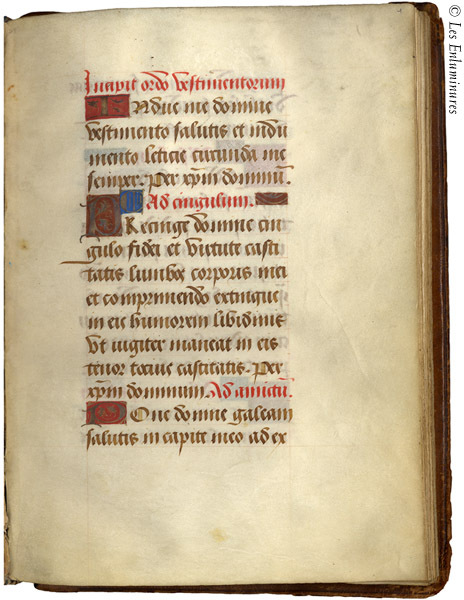 Incipit ordo vestimentorum
Indue me domine
vestimento salutis et indu
mento leticie circunda me
semper. Per xpm dominu.
Ad cingulum.
Precinge domine cin
gulo fidei et virtute casti
tatis lumbos corporis mei
et comprimendo extingue
in eis humorem libidinis
vt iugiter maneat in eis
tenor tocius castitatis. Per
xpm dominum. Ad amictu.
Pone domine galeam
salutis in capite meo ad ex
© Les Enluminures